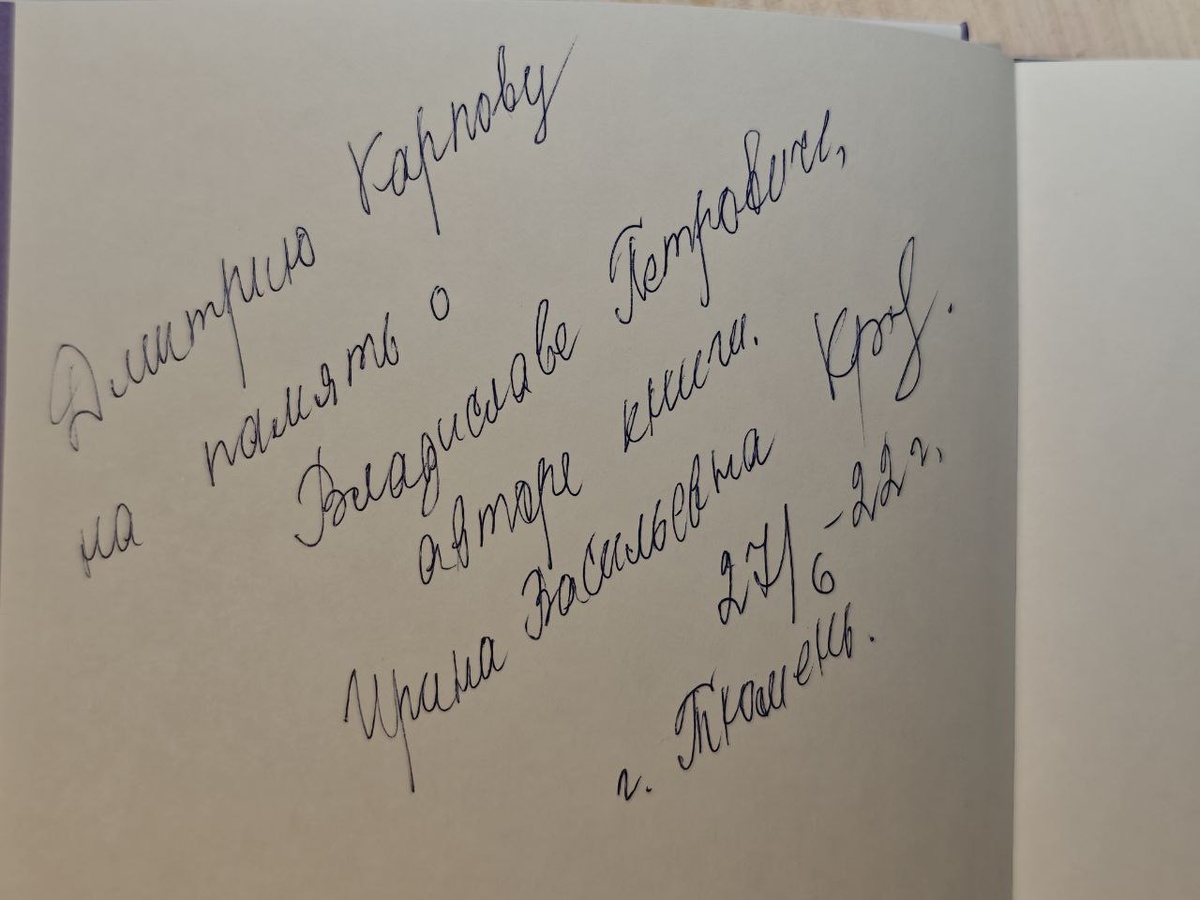 Дмитрию Карпову
на память о
Владиславе Петровиче,
авторе книги.
Ирина Васильевна
27/6-22г.
г. Тюмень.